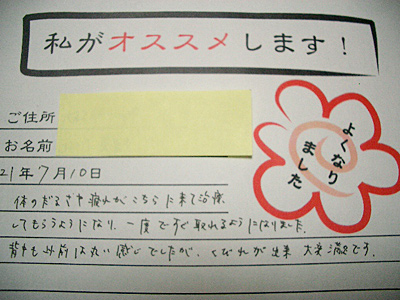 私がオススメします！
ご住所
お名前
よくなり
ました
21年7月10日
体のだるさや疲れがこちらに来て治療
してもらうようになり、一度ですぐ取れるようになりました。
背中も以前は丸い感じでしたが、くびれが出来 大変満足です。